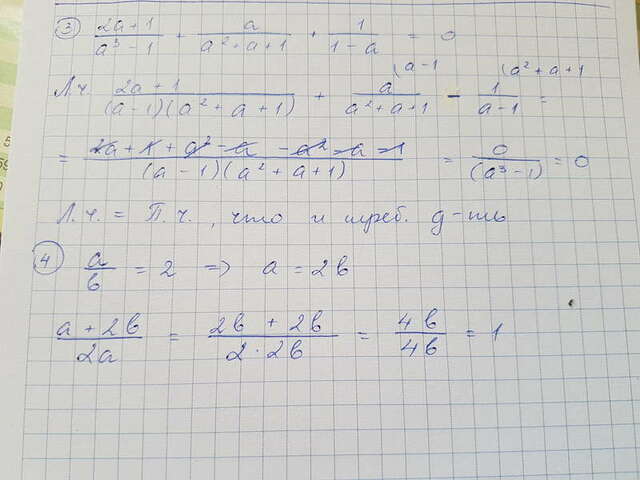 ③ (2a+1)/(a³-1) + a/(a²+a+1) + 1/(1-a) = 0
Л.ч. (2a+1)/((a-1)(a²+a+1)) + a/(a²+a+1) (a-1 - 1/(a-1) (a²+a+1 =
= (2a+1+a²-a-a²-a-1)/((a-1)(a²+a+1)) = 0/(a³-1) = 0
Л.ч. = П.ч., что и треб. д-ть
④ a/b = 2 => a = 2b
(a+2b)/2a = (2b+2b)/(2·2b) = 4b/4b = 1